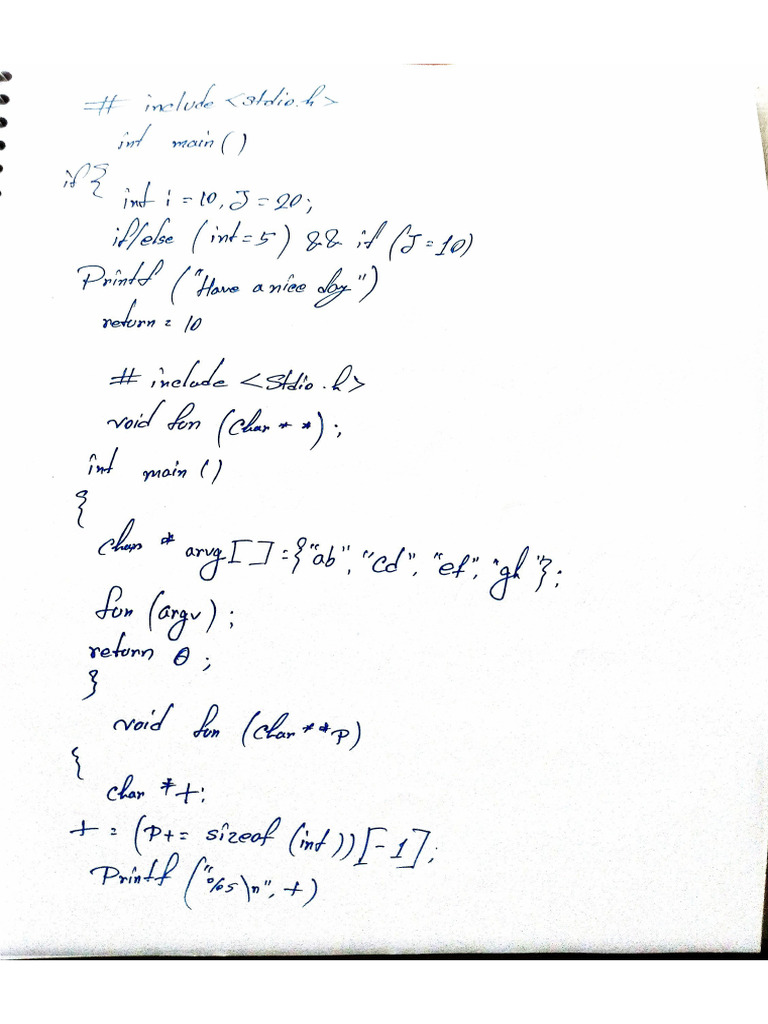 # include <stdio.h>
int main()
if {
int i = 10, J = 20;
if/else (int=5) && if (J=10)
Printf ("Have a nice day")
return = 10
# include <Stdio.h>
void fun (char **);
int main ()
{
char * arvg [ ] = {"ab", "cd", "ef", "gh"};
fun (argv);
return 0;
}
void fun (char **p)
{
char *t;
t = (P+= sizeof (int))[-1];
Printf ("%s\n", t)